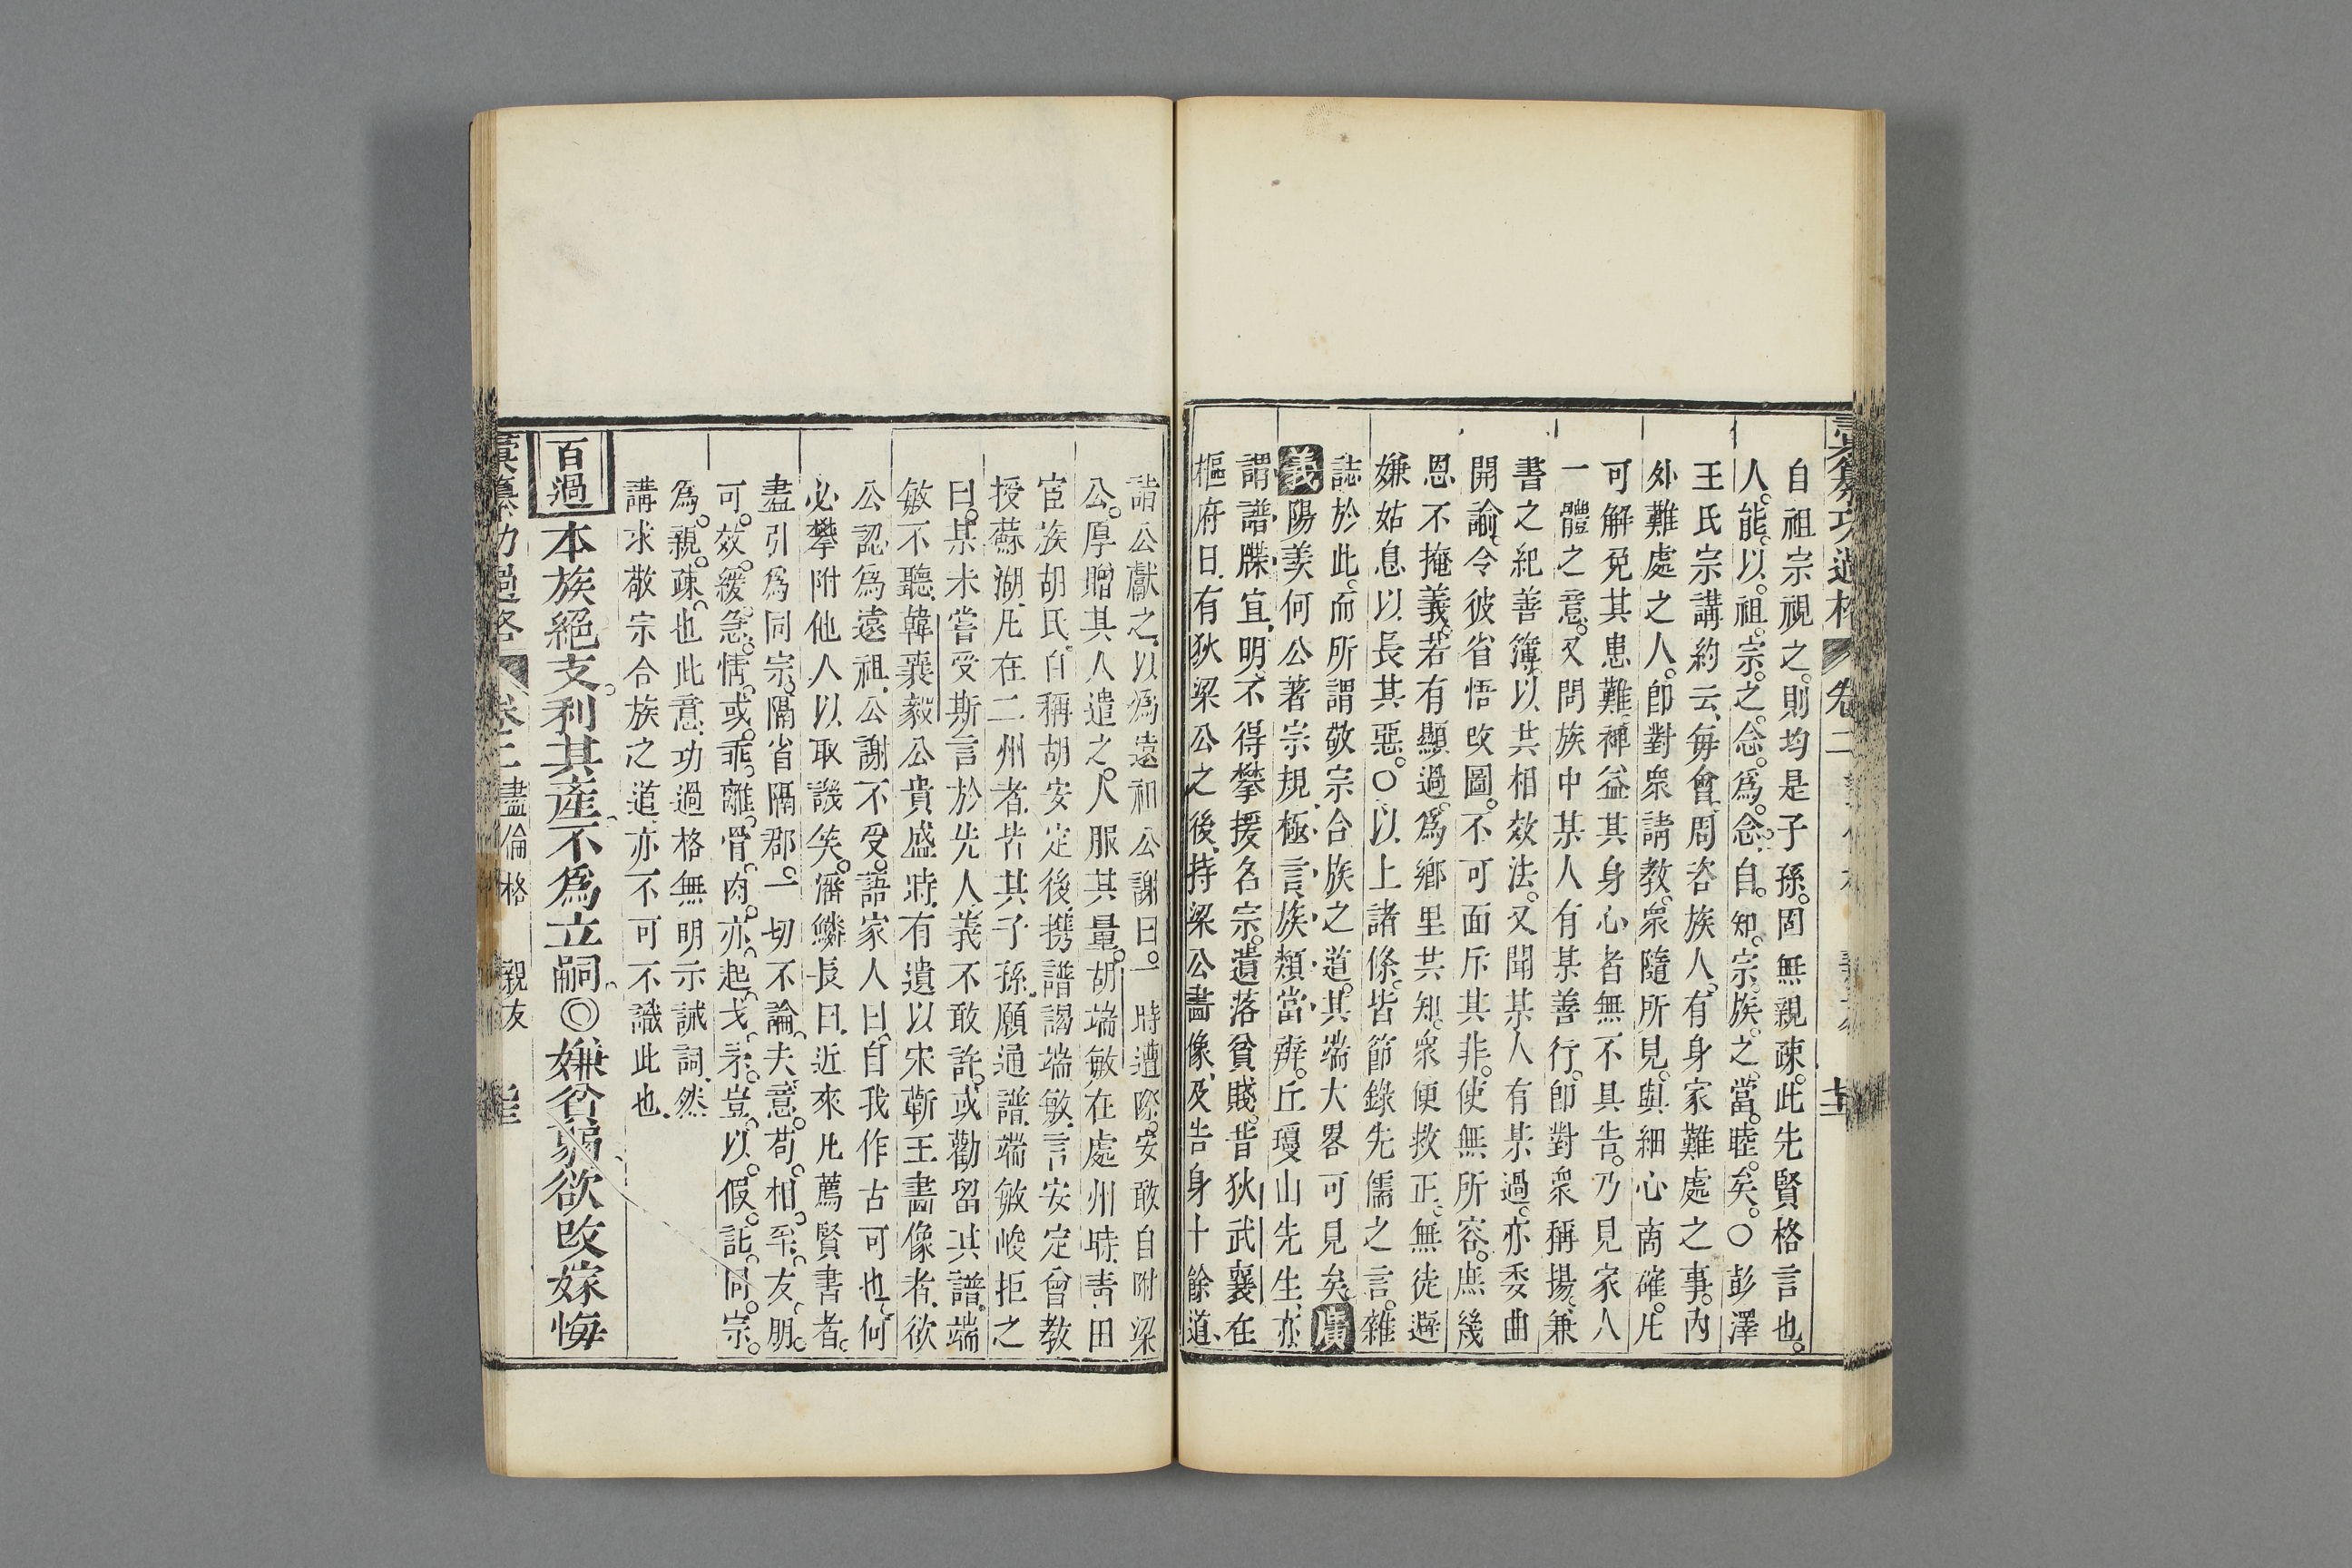 彙纂功過格 卷二
自祖宗視之則均是子孫固無親疎此先賢格言也
人能以祖宗之念爲念自知宗族之當睦矣○彭澤
王氏宗講約云每會周咨族人有身家難處之事內
外難處之人卽對衆請教衆隨所見與細心商確凡
可解免其患難裨益其身心者無不具告乃見家人
一體之意又問族中某人有某善行卽對衆稱揚兼
書之紀善簿以共相效法又聞某人有某過亦委曲
開諭令彼省悟改圖不可面斥其非使無所容庶幾
恩不掩義若有顯過爲鄉里共知衆便救正無徒避
嫌姑息以長其惡○以上諸條皆節錄先儒之言雜
誌於此而所謂敬宗合族之道其端大畧可見矣廣
義陽羨何公著宗規極言族類當辨丘瓊山先生亦
謂譜牒宜明不得攀援名宗遺落貧賤昔狄武襄在
樞府日有狄梁公之後持梁公畵像及告身十餘道
詣公獻之以爲遠祖公謝曰一時遭際安敢自附梁
公厚贈其人遣之人服其量胡端敏在處州時靑田
宦族胡氏自稱胡安定後携譜謁端敏言安定曾教
授蘇湖凡在二州者皆其子孫願通譜端敏峻拒之
曰某未嘗受斯言於先人義不敢許或勸留其譜端
敏不聽韓襄毅公貴盛時有遺以宋蘄王畵像者欲
公認爲遠祖公謝不受語家人曰自我作古可也何
必攀附他人以取譏矣潘鱗長曰近來凡薦賢書者
盡引爲同宗隔省隔郡一切不論夫意苟相至友朋
可效緩急情或乖離骨肉亦起戈矛豈以假託同宗
爲親疎也此意功過格無明示誡詞然
講求敬宗合族之道亦不可不識此也
百過 本族絕支利其產不爲立嗣◎嫌貧弱欲改嫁悔
彙纂功過格 卷二 盡倫格 親友